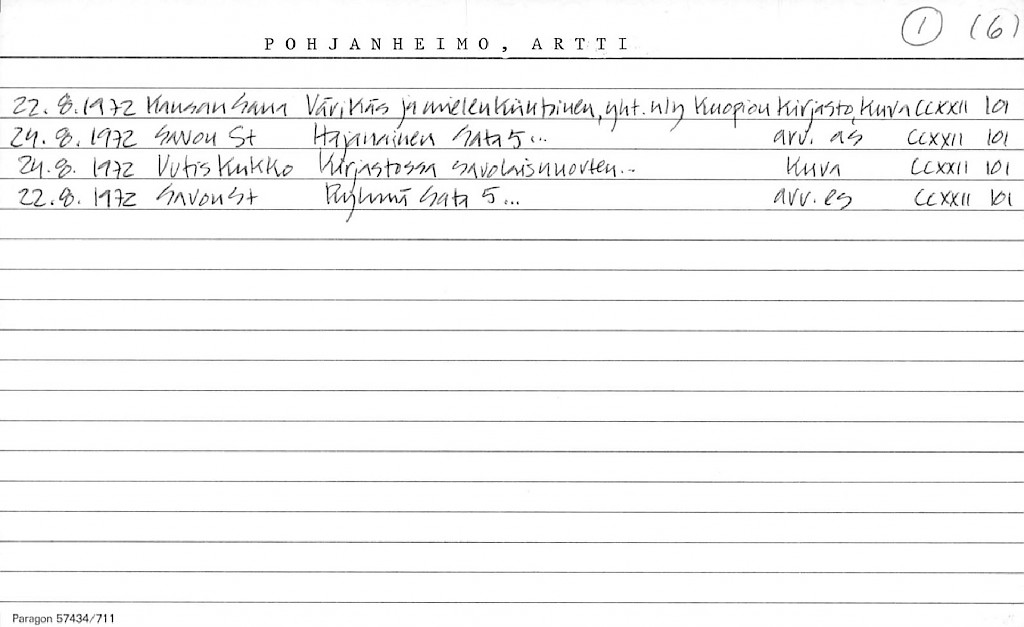 ① (6)
POHJANHEIMO, ARTTI
22.8.1972 Kansan Sana Värikäs ja mielenkiintoinen, yht. näy Kuopion Kirjasto, Kuva CCXXII 101
24.8.1972 Savon St Hajanainen Sata 5... arv. as CCXXII 101
24.8.1972 Uutis Kukko Kirjastossa savolaisnuorten... Kuva CCXXII 101
22.8.1972 Savon St Ryhmä Sata 5... arv. es CCXXII 101
Paragon 57434/711